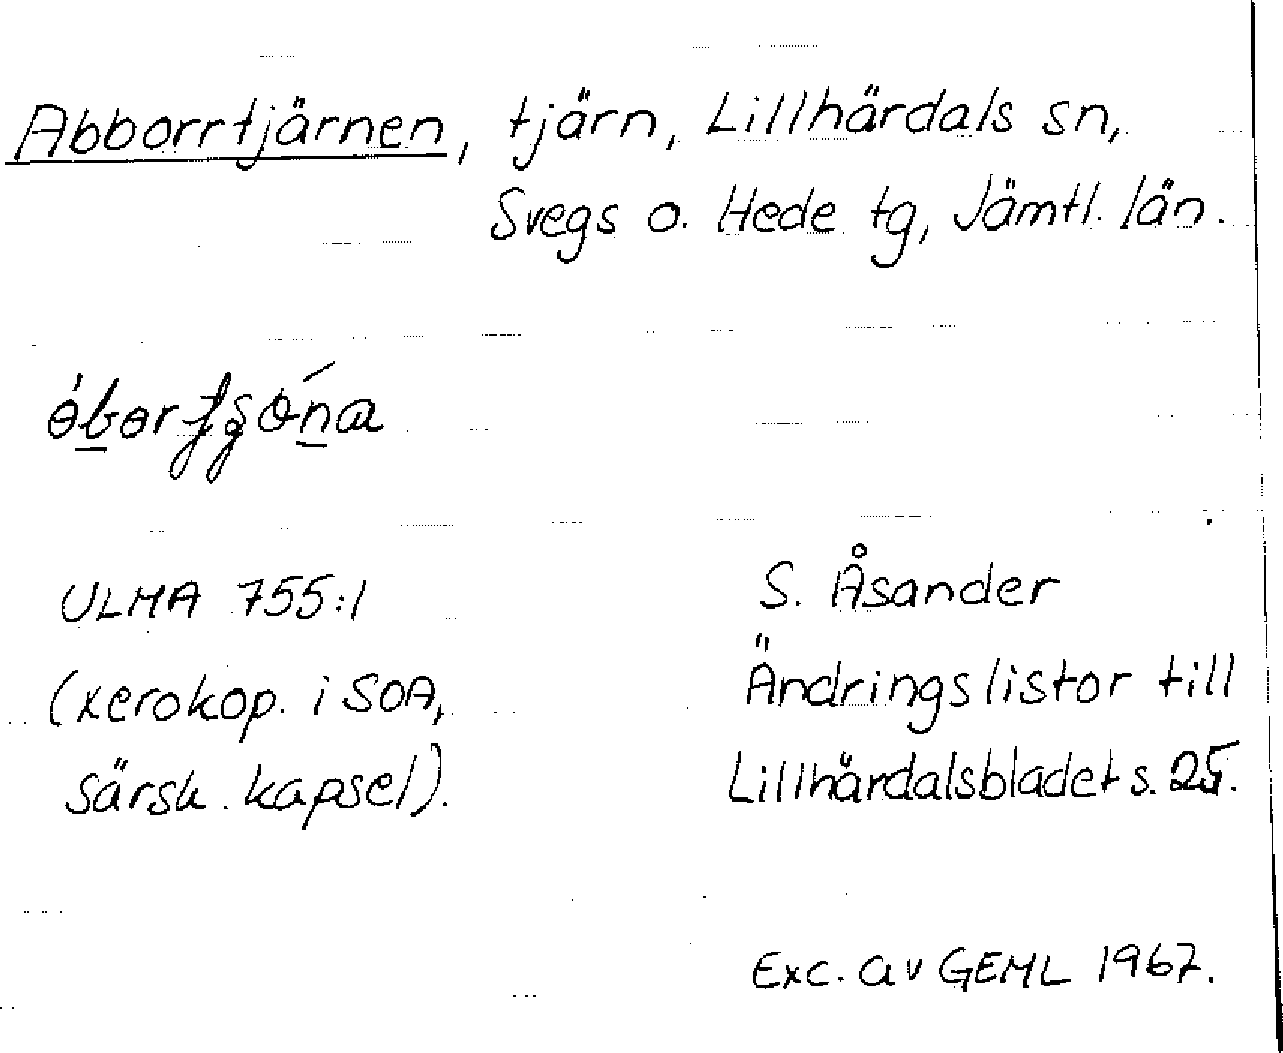 Abborrtjärnen, tjärn, Lillhärdals sn,
Svegs o. Hede tg, Jämtl. län.
ULMA 755:1
(xerokop. i SOA,
särsk. kapsel).
S. Åsander
Ändringslistor till
Lillhärdalsbladet s. 25.
Exc. av GEML 1967.